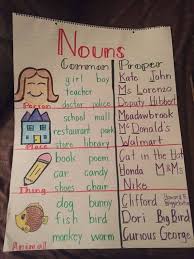 Nouns
Common Proper
girl boy Kate John
teacher Ms Lorenzo
doctor police Deputy Hibbert
Person
school mall Meadowbrook
restaurant park McDonald's
store library Walmart
Place
book poem Cat in the Hat
car candy Honda M&Ms
shoes chair Nike
Thing
dog bunny Clifford
fish bird Dori Big Bird
monkey worm Curious George
Animal